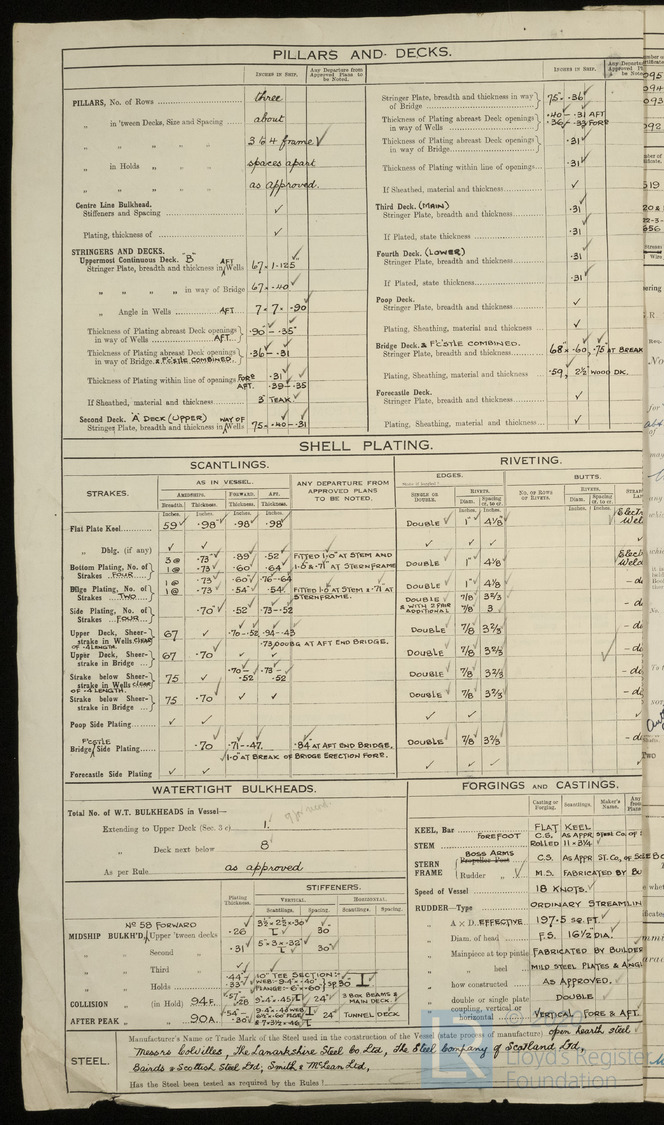 PILLARS AND DECKS.
INCHES IN SHIP. Any Departure from Approved Plans to be Noted.
PILLARS, No. of Rows three
„ in 'tween Decks, Size and Spacing about
„ „ „ „ 3 & 4 frame
„ in Holds „ spaces apart
„ „ „ „ as approved.
Centre Line Bulkhead.
Stiffeners and Spacing ✓
Plating, thickness of ✓
STRINGERS AND DECKS.
Uppermost Continuous Deck. "B"
Stringer Plate, breadth and thickness in AFT Wells 67 × 1·125"
„ „ „ „ in way of Bridge 67 × ·40
„ Angle in Wells AFT 7 × 7 × ·90
Thickness of Plating abreast Deck openings in way of Wells AFT. ·90 - ·35
Thickness of Plating abreast Deck openings in way of Bridge & F'CSTLE COMBINED. ·36 - ·31
Thickness of Plating within line of openings FORE ·31
AFT. ·39 - ·35
If Sheathed, material and thickness 3" TEAK
Second Deck. "A" DECK (UPPER)
Stringer Plate, breadth and thickness in WAY OF Wells 75 × ·40 - ·31
INCHES IN SHIP.
Stringer Plate, breadth and thickness in way of Bridge 75 × ·36
Thickness of Plating abreast Deck openings in way of Wells ·40 - ·31 AFT
·36 - ·33 FORE
Thickness of Plating abreast Deck openings in way of Bridge ·31
Thickness of Plating within line of openings ·31
If Sheathed, material and thickness ✓
Third Deck. (MAIN)
Stringer Plate, breadth and thickness ·31
If Plated, state thickness ·31
Fourth Deck. (LOWER)
Stringer Plate, breadth and thickness ·31
If Plated, state thickness ·31
Poop Deck.
Stringer Plate, breadth and thickness ✓
Plating, Sheathing, material and thickness ✓
Bridge Deck. & F'CSTLE COMBINED.
Stringer Plate, breadth and thickness 68" × ·60, ·75 AT BREAK
Plating, Sheathing, material and thickness ·59, 2½" WOOD DK.
Forecastle Deck.
Stringer Plate, breadth and thickness ✓
Plating, Sheathing, material and thickness ✓
SHELL PLATING.
SCANTLINGS.
RIVETING.
STRAKES.
AS IN VESSEL.
ANY DEPARTURE FROM APPROVED PLANS TO BE NOTED.
EDGES.
BUTTS.
AMIDSHIPS. FORWARD. AFT.
Breadth. Thickness. Thickness. Thickness.
SINGLE OR DOUBLE. RIVETS. Diam. Spacing cr. to cr.
NO. OF ROWS OF RIVETS. RIVETS. Diam. Spacing cr. to cr.
Inches. Inches. Inches. Inches.
Flat Plate Keel 59 ·98 ·98 ·98 DOUBLE 1" 4⅛
„ Dblg. (if any) ✓ ✓ ✓ ✓ ✓
Bottom Plating, No. of Strakes FOUR 3 @ ·73 ·89 ·52 FITTED 1'-0" AT STEM AND
1 @ ·73 ·60 ·64 1'-5 & ·71" AT STERNFRAME DOUBLE 1" 4⅛
Bilge Plating, No. of Strakes TWO 1 @ ·73 ·60 ·76-64 DOUBLE 1" 4⅛
1 @ ·73 ·54 ·54 FITTED 1·0 AT STEM & ·71 AT STERNFRAME.
Side Plating, No. of Strakes FOUR ·70 ·52 ·73-·52 DOUBLE & WITH 2 PAIR ADDITIONAL 7/8 3⅔
7/8 3
Upper Deck, Sheer-strake in Wells CLEAR OF ·4 LENGTH. 67 ✓ ·70-·52 ·94-·43 DOUBLE 7/8 3⅔
·73,000 BG AT AFT END BRIDGE.
Upper Deck, Sheer-strake in Bridge 67 ·70 ✓ ✓ DOUBLE 7/8 3⅔
Strake below Sheer-strake in Wells CLEAR OF ·4 LENGTH. 75 ✓ ·70-·52 ·73-·52 DOUBLE 7/8 3⅔
Strake below Sheer-strake in Bridge 75 ·70 ✓ ✓ DOUBLE 7/8 3⅔
Poop Side Plating ✓ ✓ ✓ ✓
Bridge F'CSTLE Side Plating ·70 ·71-·47. ·84 AT AFT END BRIDGE. DOUBLE 7/8 3⅔
1·0" AT BREAK OF BRIDGE ERECTION FORE.
Forecastle Side Plating ✓ ✓ ✓ ✓ ✓
WATERTIGHT BULKHEADS.
Total No. of W.T. BULKHEADS in Vessel—
Extending to Upper Deck (Sec. 3 c) 1.
„ Deck next below 8
As per Rule as approved
Plating Thickness.
STIFFENERS.
VERTICAL. HORIZONTAL.
Scantlings. Spacing. Scantlings. Spacing.
No 58 FORWARD
MIDSHIP BULKH'D, Upper 'tween decks ·26 3½ × 2½ × ·30 30"
„ „ Second „ ·31 5" × 3 × ·32" 30"
„ „ Third „ ✓ ✓
„ „ Holds ·44 ·33 10" TEE SECTION:- WEB:- 9·4" × ·40" FLANGE:- 6" × ·60" SP 30
COLLISION „ (in Hold) 94 F. ·57 ·28 9" × 4" × ·45 24" 3 BOX BEAMS & MAIN DECK.
AFTER PEAK „ „ 90A. ·54 - ·30 24" TUNNEL DECK
FORGINGS AND CASTINGS.
Casting or Forging. Scantlings. Maker's Name.
KEEL, Bar FLAT KEEL
STEM FOREFOOT C.S. AS APPR STEEL CO. OF
ROLLED 11 × 3¼
STERN FRAME BOSS ARMS Propeller Post C.S. AS APPR ST. CO, OF SC
Rudder „ M.S. FABRICATED BY BU
Speed of Vessel 18 KNOTS.
RUDDER—Type ORDINARY STREAMLIN
„ A × D. EFFECTIVE 197·5 SQ. FT.
„ Diam. of head F.S. 16½ DIA.
„ Mainpiece at top pintle FABRICATED BY BUILDER
„ „ heel MILD STEEL PLATES & ANGL
„ how constructed AS APPROVED.
„ double or single plate DOUBLE
„ coupling, vertical or horizontal VERTICAL FORE & AFT.
STEEL.
Manufacturer's Name or Trade Mark of the Steel used in the construction of the Vessel (state process of manufacture) open hearth steel
Messrs Colvilles, The Lanarkshire Steel Co Ltd, The Steel Company of Scotland Ltd,
Bairds & Scottish Steel Ltd, Smith & McLean Ltd,
Has the Steel been tested as required by the Rules?
Lloyd's Register
Foundation